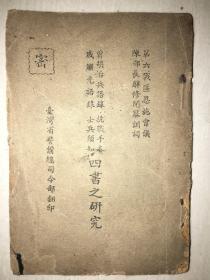 密
第六戰區恩施會議
陳部長辭修閉幕訓詞
曾胡治兵語錄 抗戰手本
戚繼光語錄 士兵須知
四書之研究
臺灣省警備總司令部翻印